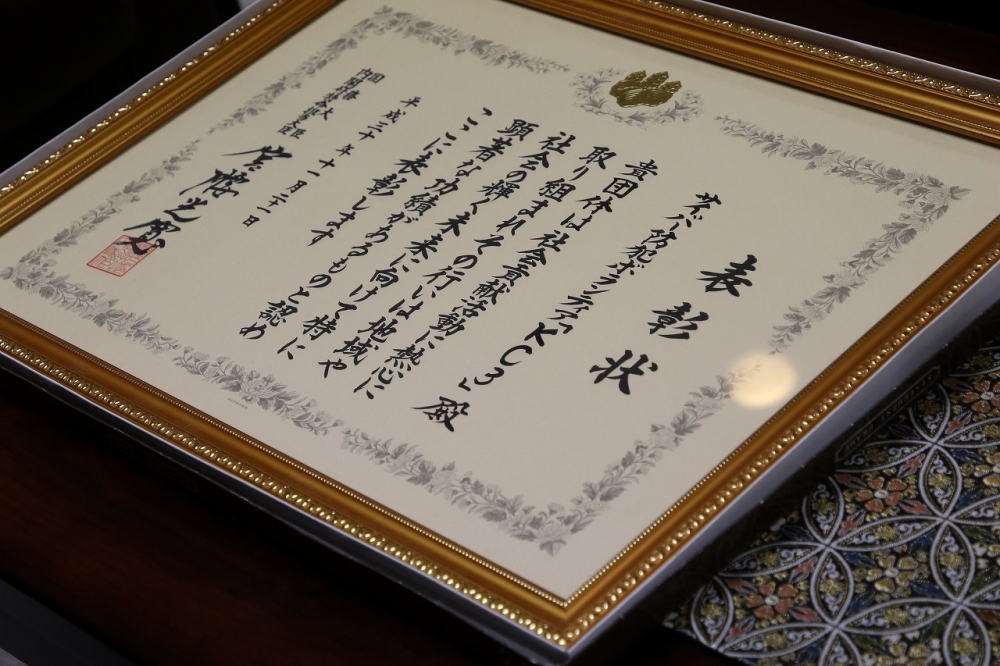 表彰状
サイバー防犯ボランティア「KC3」殿
貴団体は社会貢献活動に熱心に
取り組まれその行いは地域や
社会の輝く未来に向けて特に
顕著な功績があるものと認め
ここに表彰します
平成三十年十一月二十一日
国務大臣
宮腰光寛